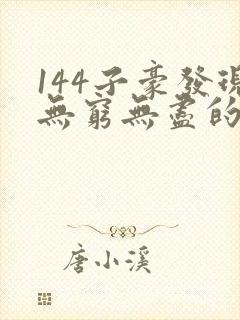 144子豪發現
無窮無盡的
唐小溪